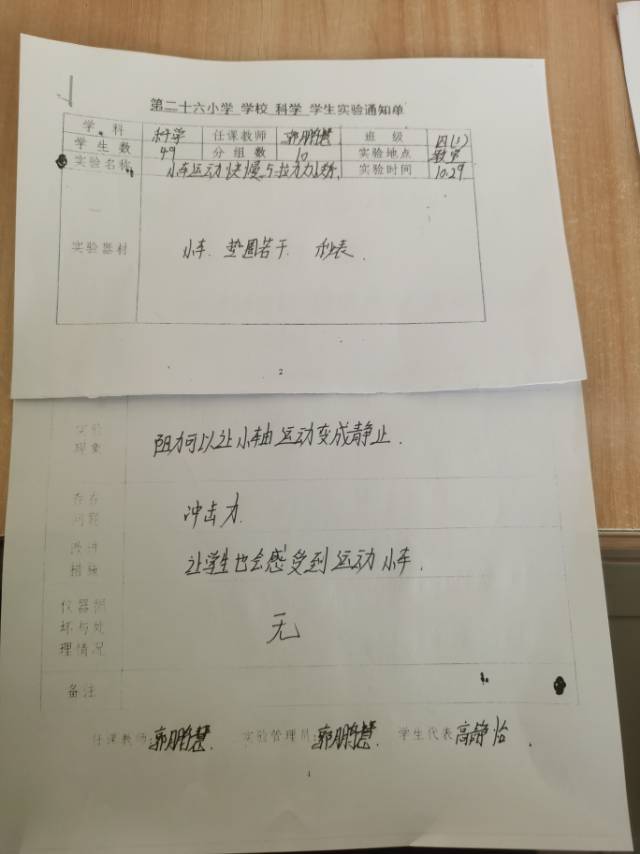 第二十六小学 学校 科学 学生实验通知单
学科 科学 任课教师 郭鹏慧 班级 四(1)
学生数 49 分组数 10 实验地点 教室
实验名称 小车运动快慢与拉力 实验时间 10.29
实验器材 小车. 垫圈若干. 秒表.
2
实验现象 阻力可以让小车由运动变成静止.
存在问题 冲击力
改进措施 让学生也会感受到运动小车.
仪器损坏与处理情况 无
备注
任课教师:郭鹏慧. 实验管理员:郭鹏慧. 学生代表:高静怡.
1